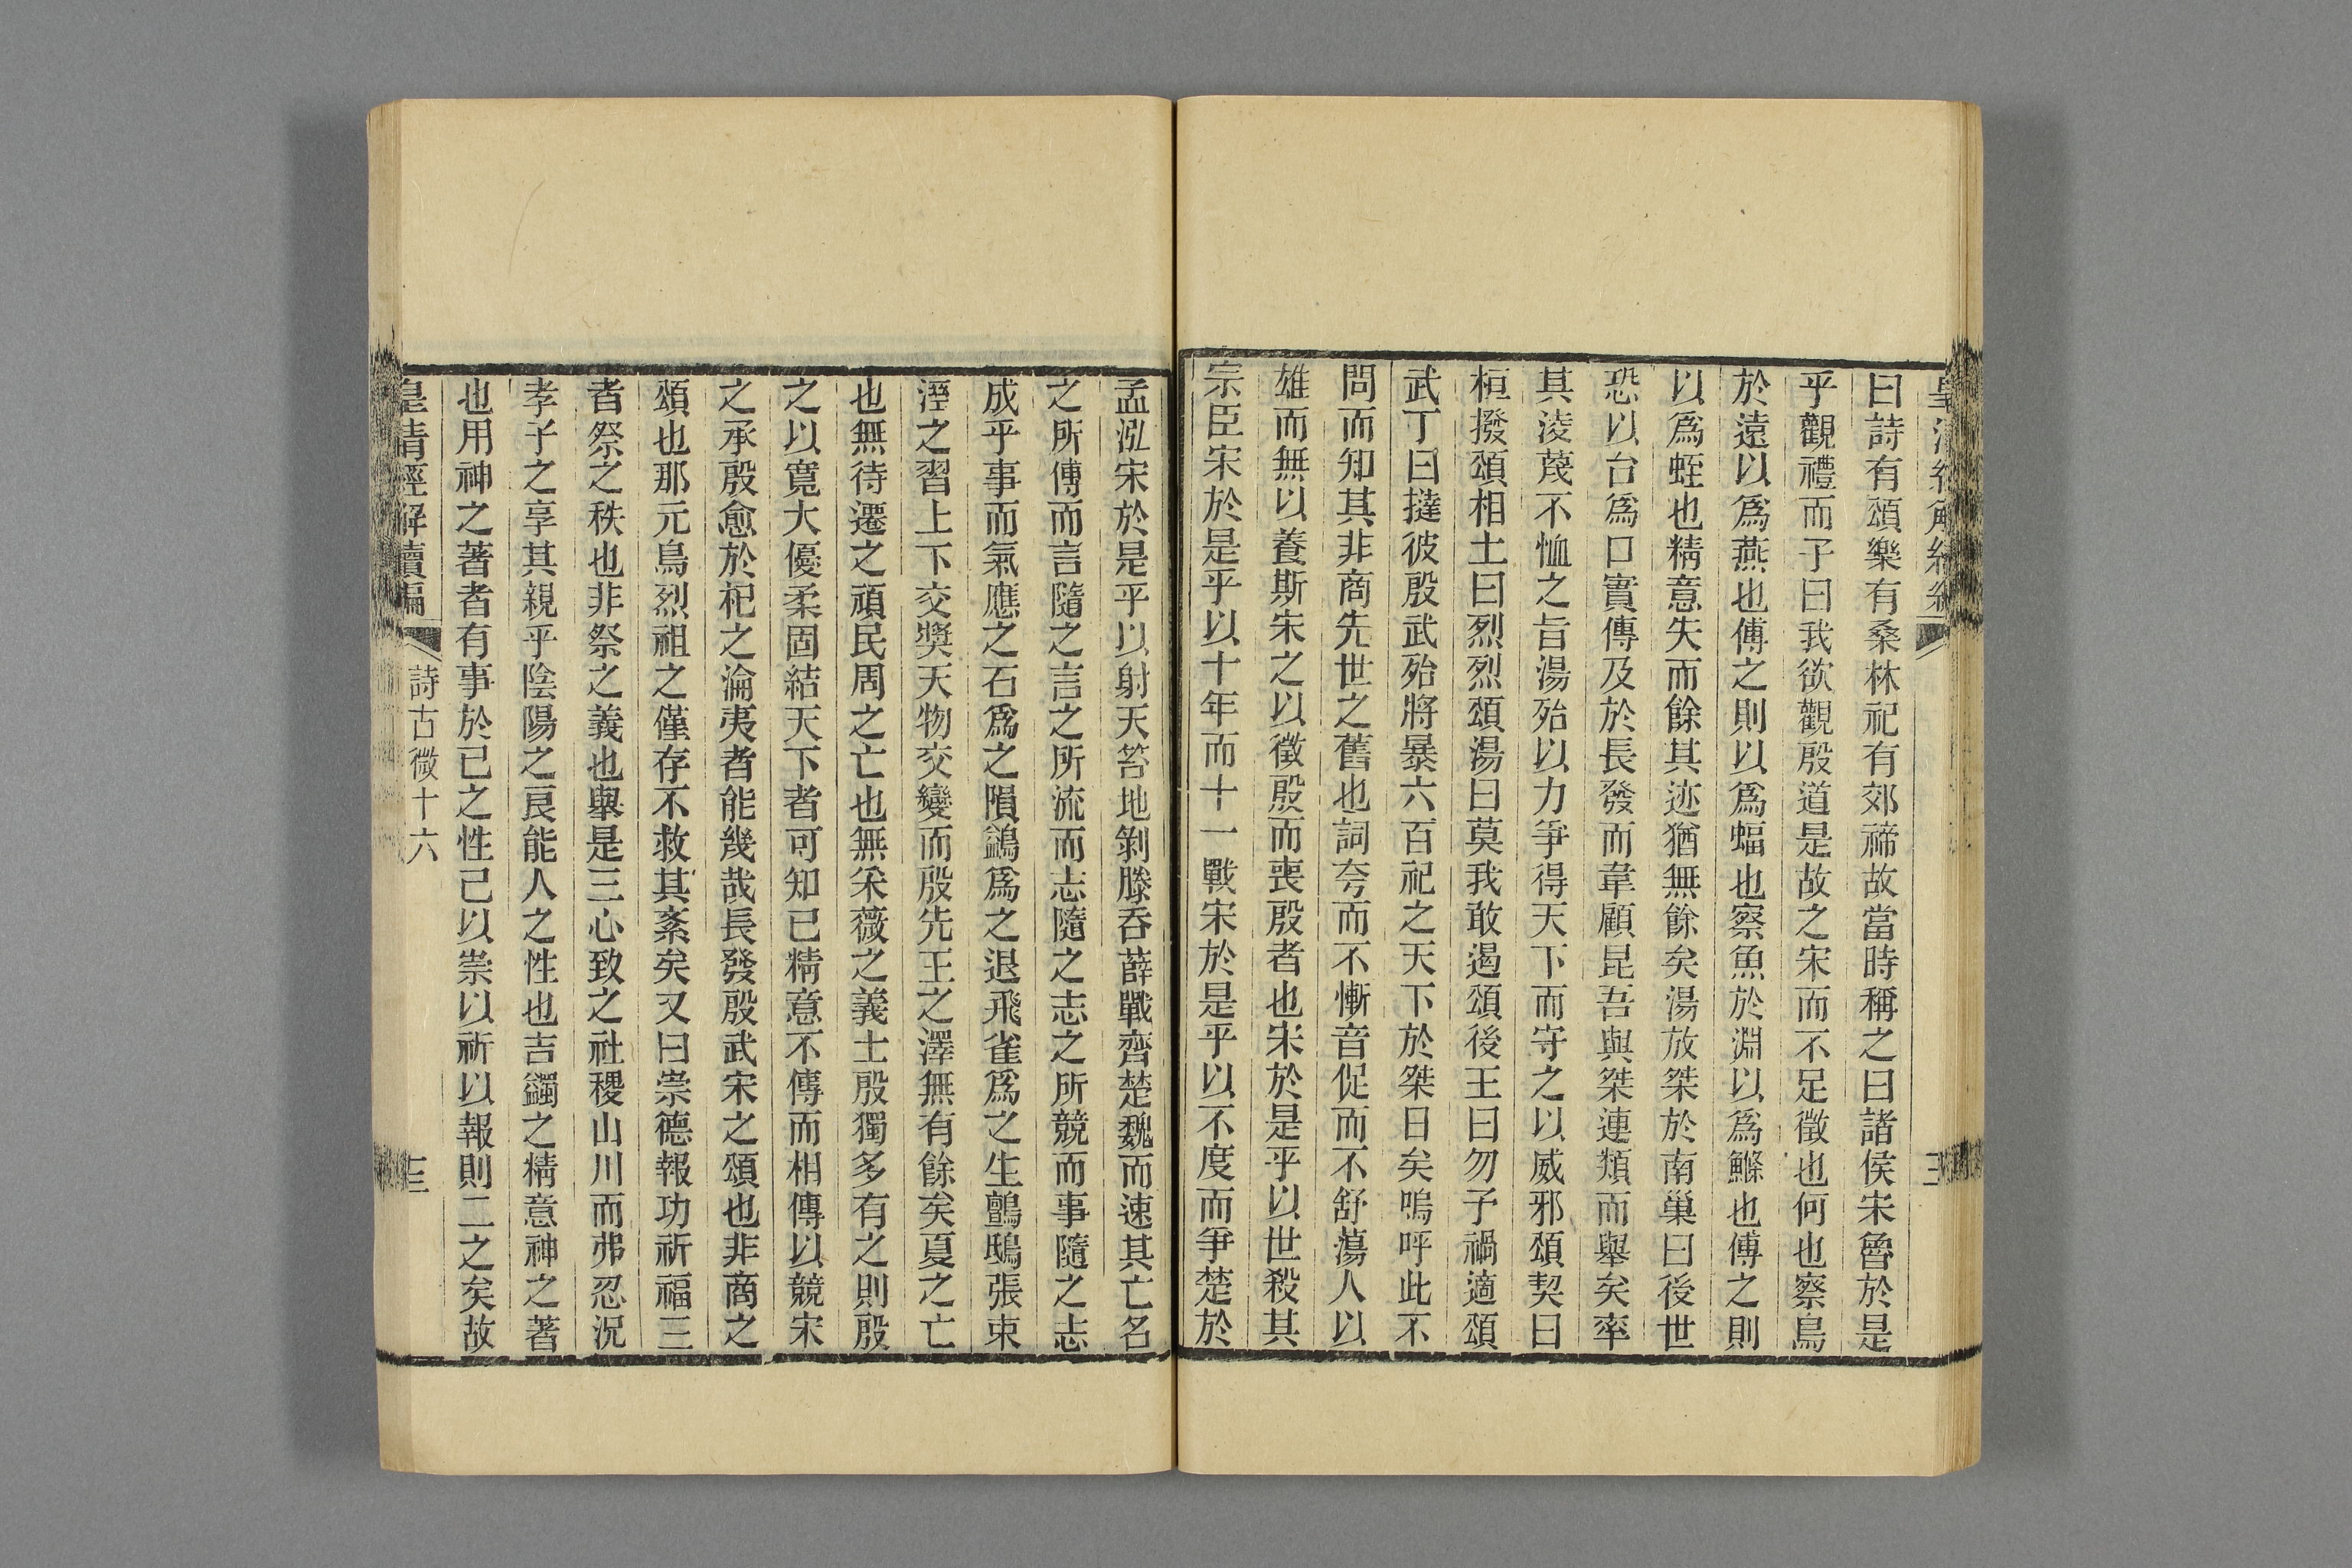 皇清經解續編
曰詩有頌樂有桑林祀有郊禘故當時稱之曰諸侯宋魯於是
乎觀禮而子曰我欲觀殷道是故之宋而不足徵也何也察鳥
於遠以爲燕也傅之則以爲蝠也察魚於淵以爲鰷也傅之則
以爲蛭也精意失而餘其迹猶無餘矣湯放桀於南巢曰後世
恐以台爲口實傳及於長發而韋顧昆吾與桀連類而舉矣率
其淩蔑不恤之旨湯殆以力爭得天下而守之以威邪頌契曰
桓撥頌相土曰烈烈頌湯曰莫我敢遏頌後王曰勿予禍適頌
武丁曰撻彼殷武殆將暴六百祀之天下於桀日矣嗚呼此不
問而知其非商先世之舊也詞夸而不慚音促而不舒蕩人以
雄而無以養斯宋之以徵殷而喪殷者也宋於是乎以世殺其
宗臣宋於是乎以十年而十一戰宋於是乎以不度而爭楚於
孟泓宋於是乎以射天笞地剝滕吞薛戰齊楚魏而速其亡名
之所傳而言隨之言之所流而志隨之志之所競而事隨之志
成乎事而氣應之石爲之隕鷁爲之退飛雀爲之生鸇鴟張束
溼之習上下交獎天物交變而殷先王之澤無有餘矣夏之亡
也無待遷之頑民周之亡也無采薇之義士殷獨多有之則殷
之以寬大優柔固結天下者可知已精意不傳而相傳以競宋
之承殷愈於祀之淪夷者能幾哉長發殷武宋之頌也非商之
頌也那元鳥烈祖之僅存不救其紊矣又曰崇德報功祈福三
者祭之秩也非祭之義也舉是三心致之社稷山川而弗忍況
孝子之享其親乎陰陽之良能人之性也吉蠲之精意神之著
也用神之著者有事於已之性己以崇以祈以報則二之矣故
皇清經解續編
詩古微十六
三